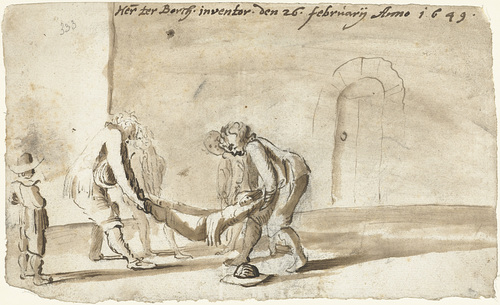 Her̃ ter Borch. inventor. den 26. februarij Anno 1649.
333